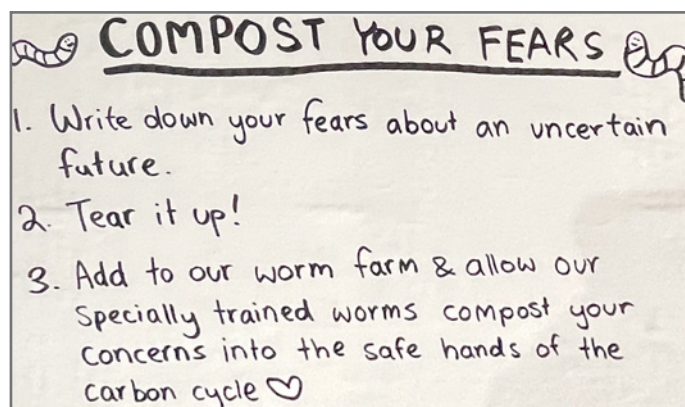 COMPOST YOUR FEARS
1. Write down your fears about an uncertain
future.
2. Tear it up!
3. Add to our worm farm & allow our
specially trained worms compost your
concerns into the safe hands of the
carbon cycle ♡